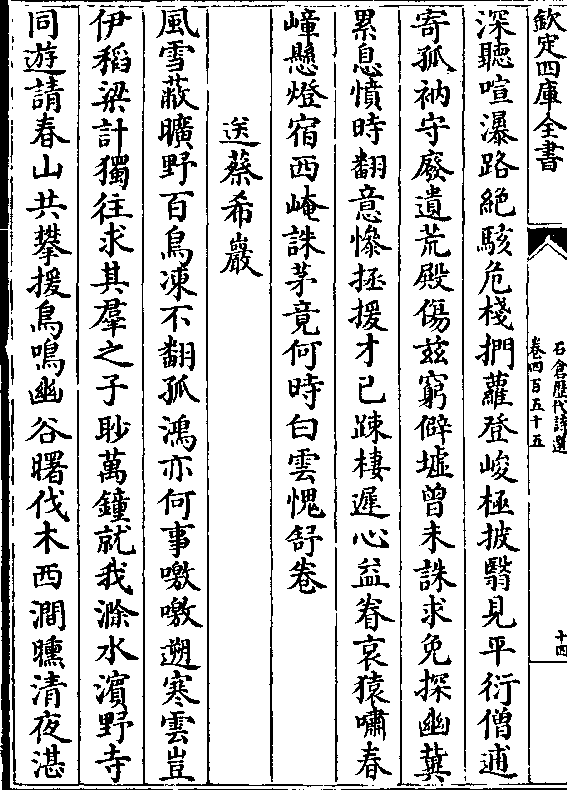 欽定四庫全書
石倉歷代詩選
卷四百五十五
十四
深聽喧瀑路絶駭危棧捫蘿登峻極披翳見平衍僧逋
寄孤衲守廢遺荒殿傷兹窮僻墟曾未誅求免探幽冀
累息憤時翻意慘拯援才已疎棲遲心益眷哀猿嘯春
嶂懸燈宿西崦誅茅竟何時白雲愧舒卷
送蔡希巖
風雪蔽曠野百鳥凍不翻孤鴻亦何事噭噭遡寒雲豈
伊稻粱計獨往求其羣之子眇萬鐘就我滁水濱野寺
同遊請春山共攀援鳥鳴幽谷曙伐木西澗曛清夜湛